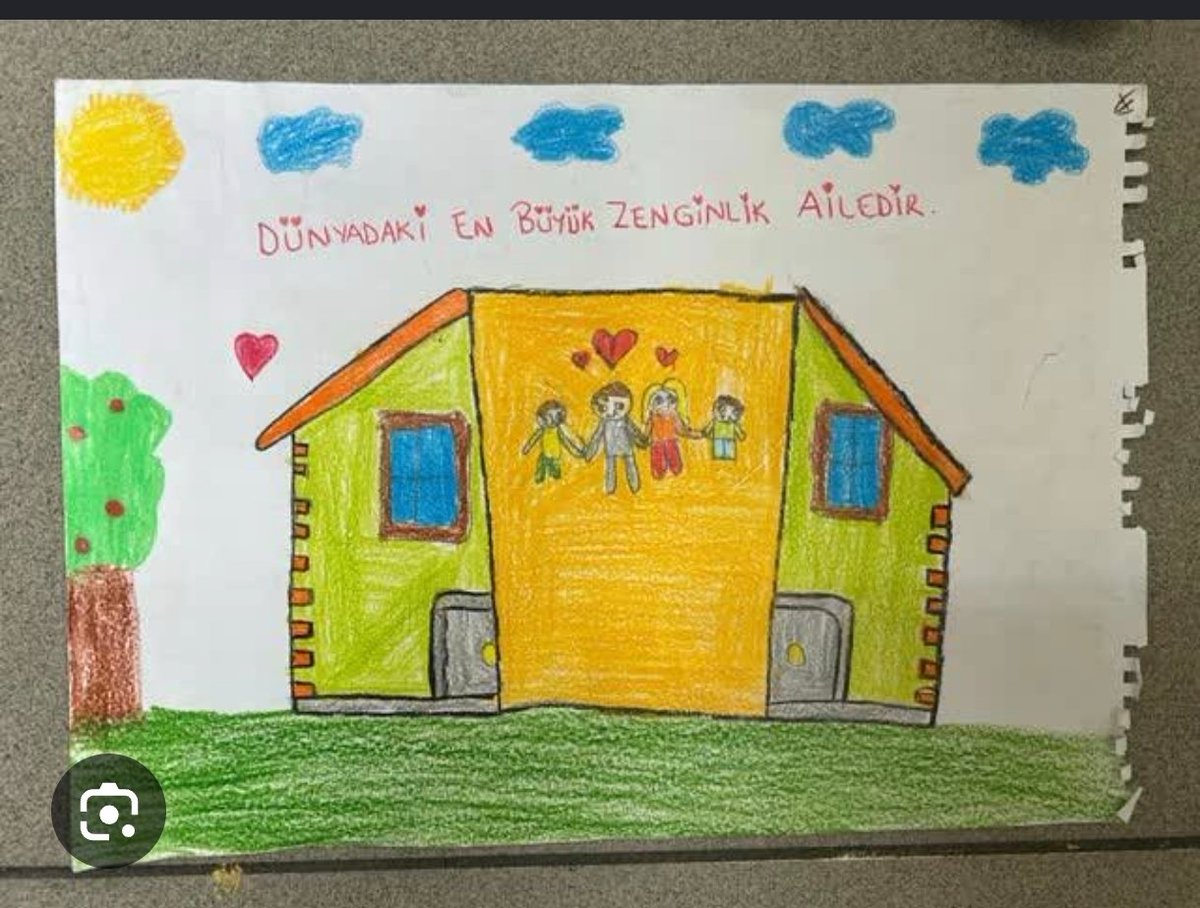 DÜNYADAKİ EN BÜYÜK ZENGİNLİK AİLEDİR.